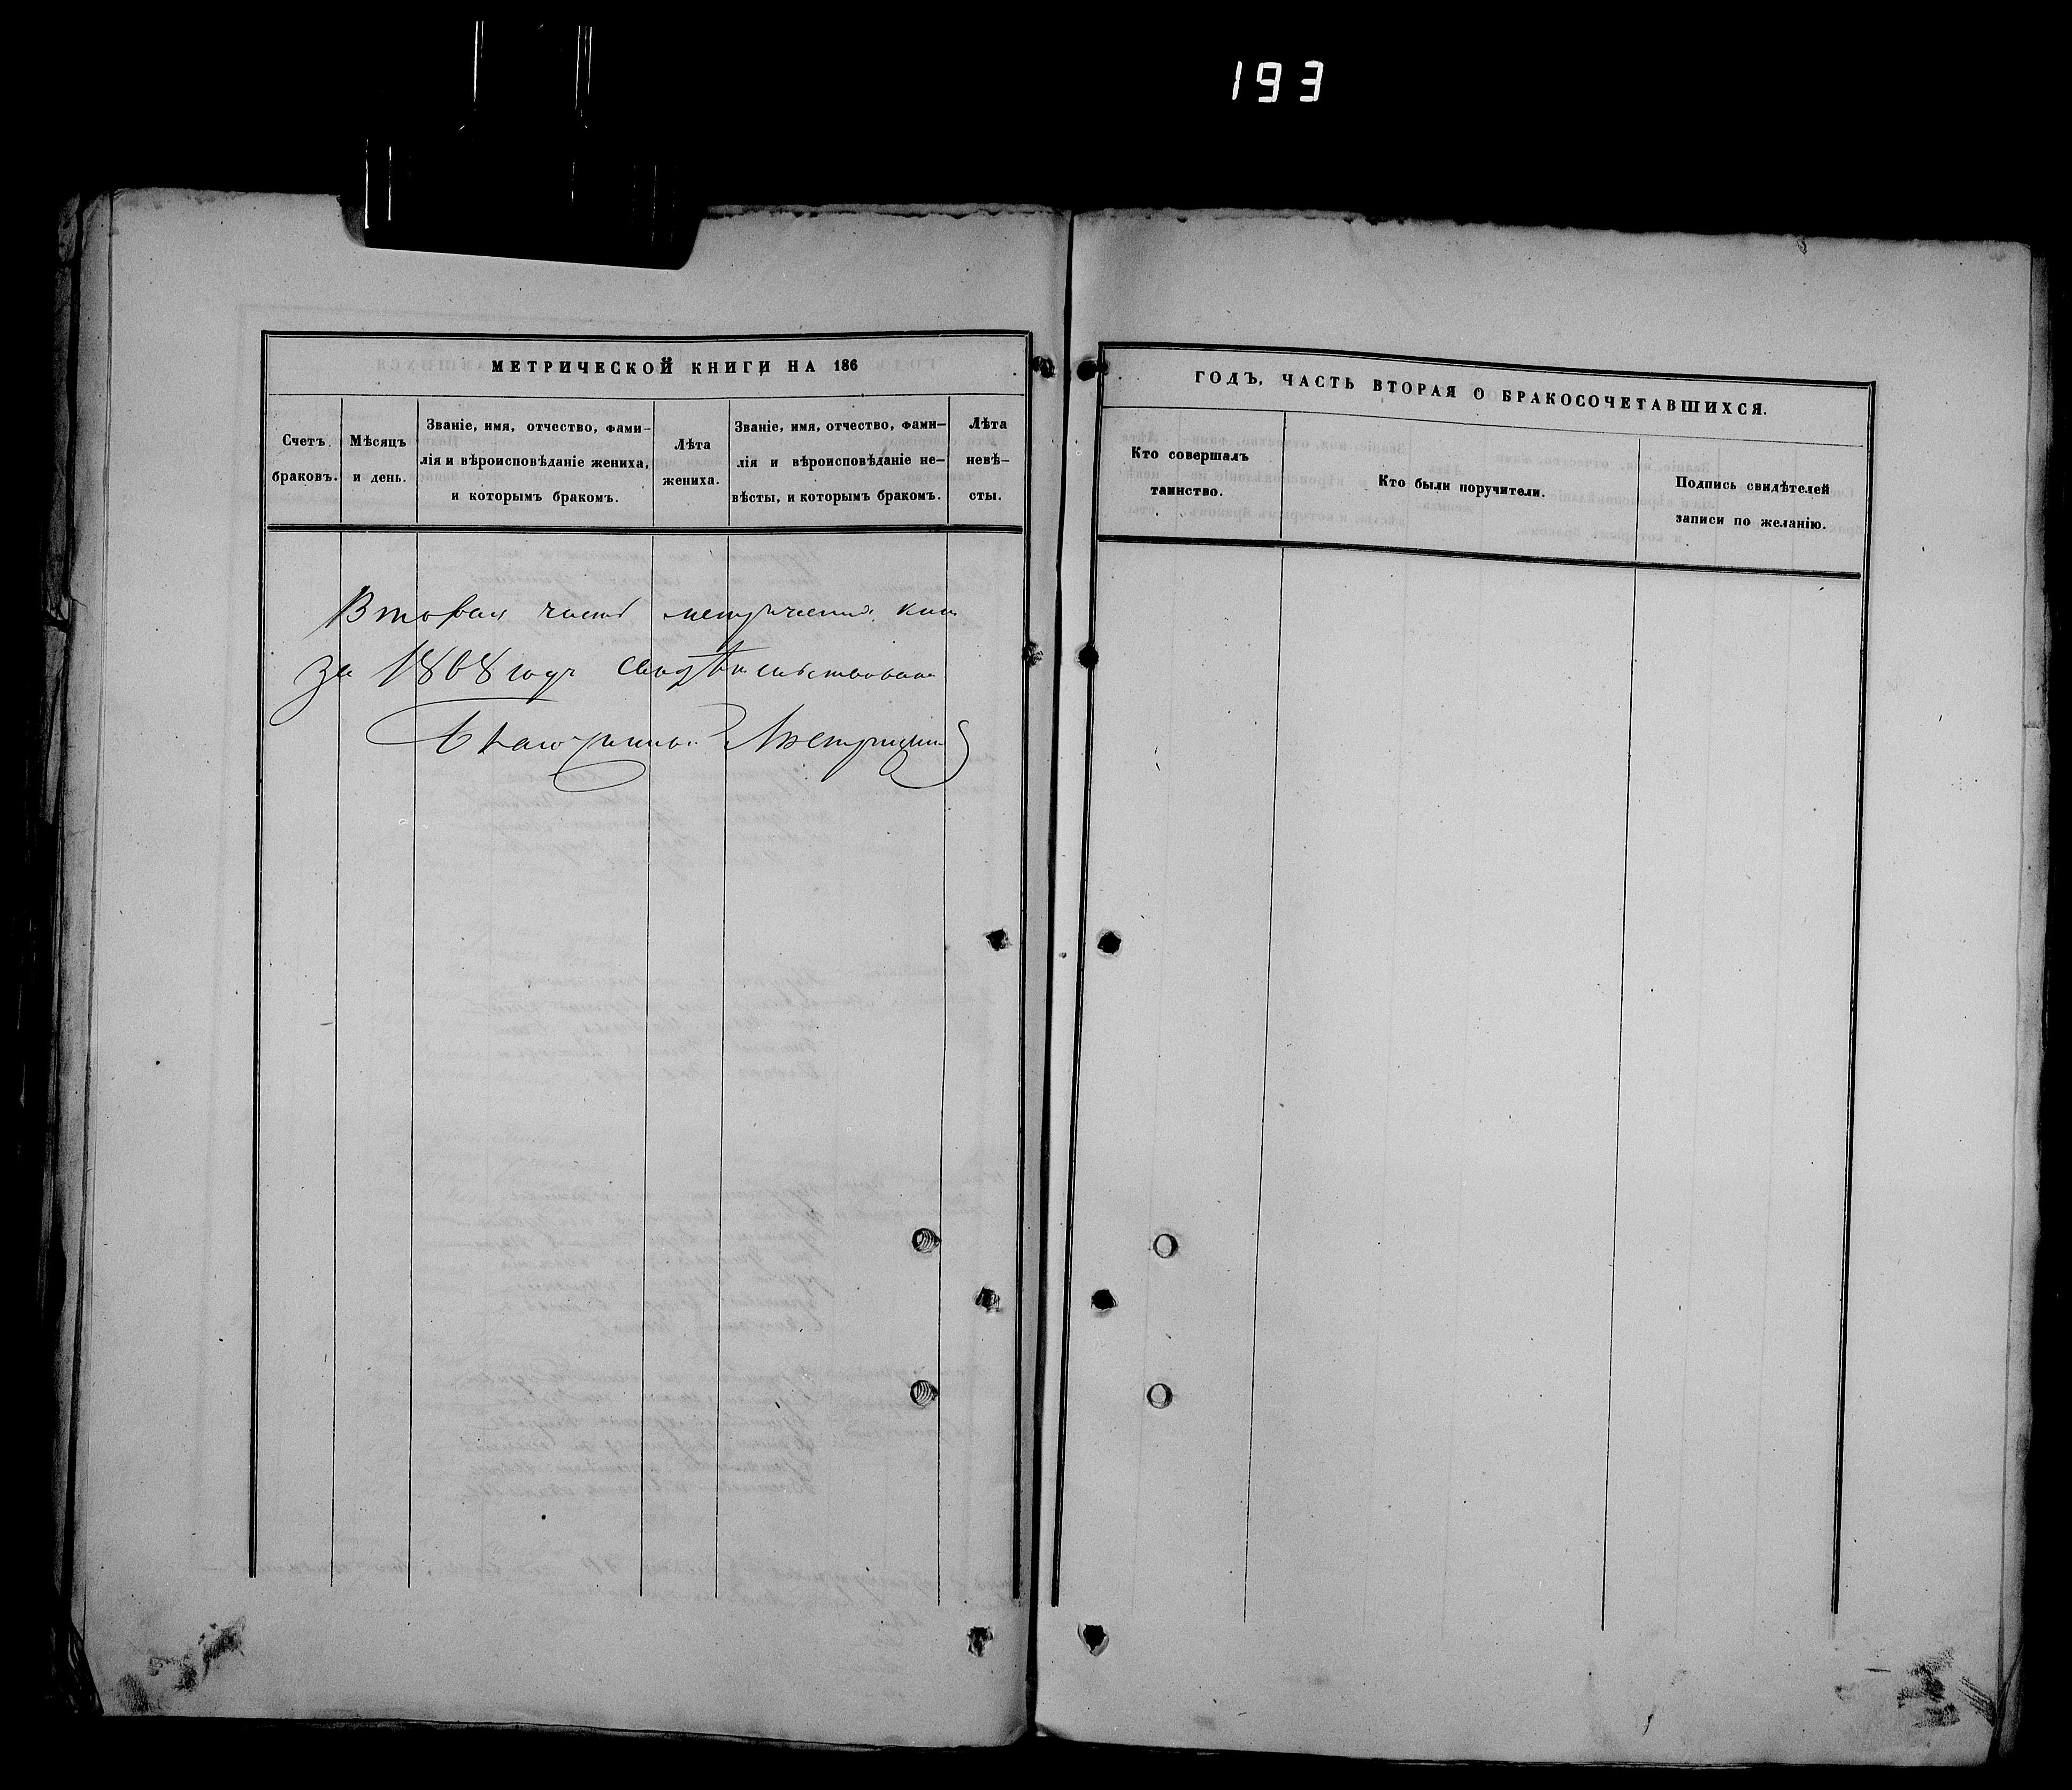 193
МЕТРИЧЕСКОЙ КНИГИ НА 186
Счетъ браковъ.
Мѣсяцъ и день.
Званіе, имя, отчество, фами-
лія и вѣроисповѣданіе жениха,
и которымъ бракомъ.
Лѣта жениха.
Званіе, имя, отчество, фами-
лія и вѣроисповѣданіе не-
вѣсты, и которымъ бракомъ.
Лѣта невѣ-
сты.
Вторая часть метрической
за 1868 годъ свидѣтельствована
ГОДЪ, ЧАСТЬ ВТОРАЯ О БРАКОСОЧЕТАВШИХСЯ.
Кто совершалъ
таинство.
Кто были поручители.
Подпись свидѣтелей
записи по желанію.